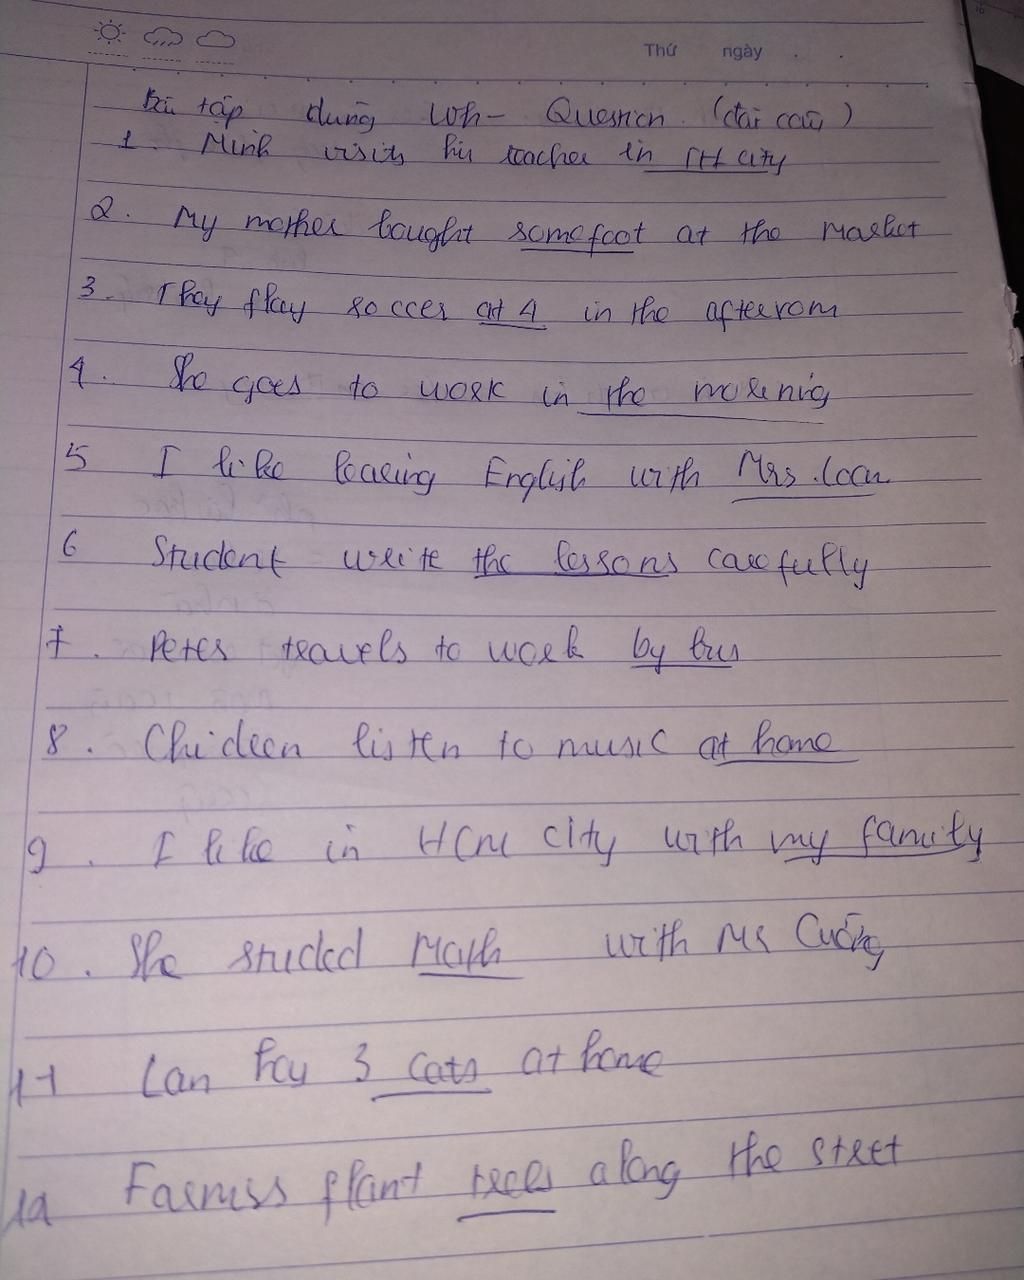 Thứ ngày
Bài tập dùng Wh- Question (đặt câu)
1. Minh visits his teacher in city
2. My mother bought some foot at the market
3. They play soccer at 4 in the afteerom
4. She goes to work in the morning
5 I like learing English with Mrs. Loan
6 Student write the lessons carefully
7. Peter travels to work by bus
8. Children listen to music at home
9. I like in HCM city with my family
10. She studed Math with Ms Cường
11 Lan hay 3 cats at home
12 plant trees along the street